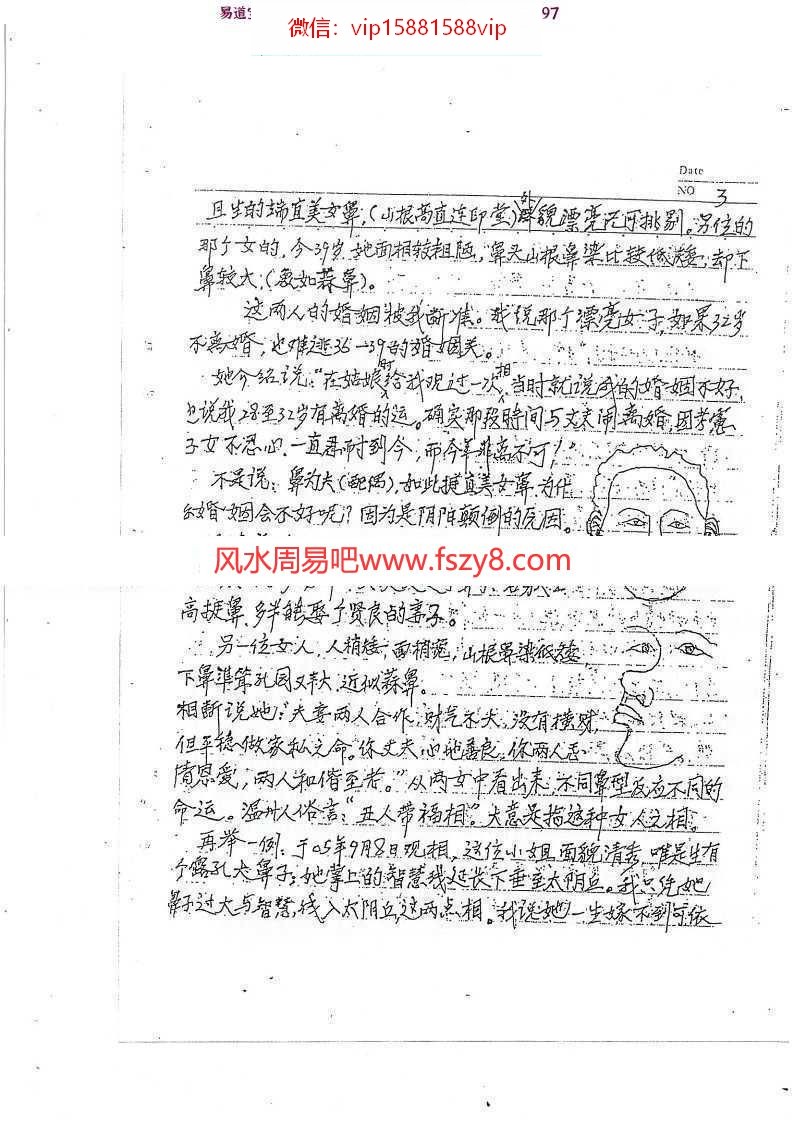 易道
微信：vip15881588vip
97
Date
NO 3
且生的端直美女鼻，(山根高直连印堂)外貌漂亮无可挑剔。另位的
那个女的，今39岁，她面相较粗陋，鼻头山根鼻梁比较低矮，却下
鼻较大；(教如蒜鼻)。
这两人的婚姻被我断准。我说那个漂亮女子，如果32岁
不离婚，也难逃35—39的婚姻关。
她介绍说："在姑娘时给我观过一次相，当时就说我的婚姻不好，
也说我28至32岁有离婚的运。确实那段时间与丈夫闹离婚，因考虑
子女不忍心，一直忍耐到今，而今年非离不可，"
不是说：鼻为夫(配偶)，如此挺直美女鼻，为什
么婚姻会不好呢？因为是阴阳颠倒的原因。
风水周易吧www.fszy8.com
高挺鼻，多半能娶个贤良的妻子。
另一位女人，人稍矮，面稍宽，山根鼻梁低矮，
下鼻準笨孔园又大，近似蒜鼻。
相断说她："夫妻两人合作，财气不大，没有横财，
但平稳做家私之命。你丈夫心地善良，你两人恩
情恩爱，两人和偕至老。"从两女中看出来，不同鼻型反应不同的
命运。温州人俗言："丑人带福相"。大意是指这种女人之相。
再举一例：于05年9月8日观相，这位小姐面貌清秀，唯是生有
个露孔大鼻子；她掌上的智慧线延长下垂至太阴丘。我只凭她
鼻子过大与智慧线入太阴丘，这两点相。我说她一生嫁不到可依